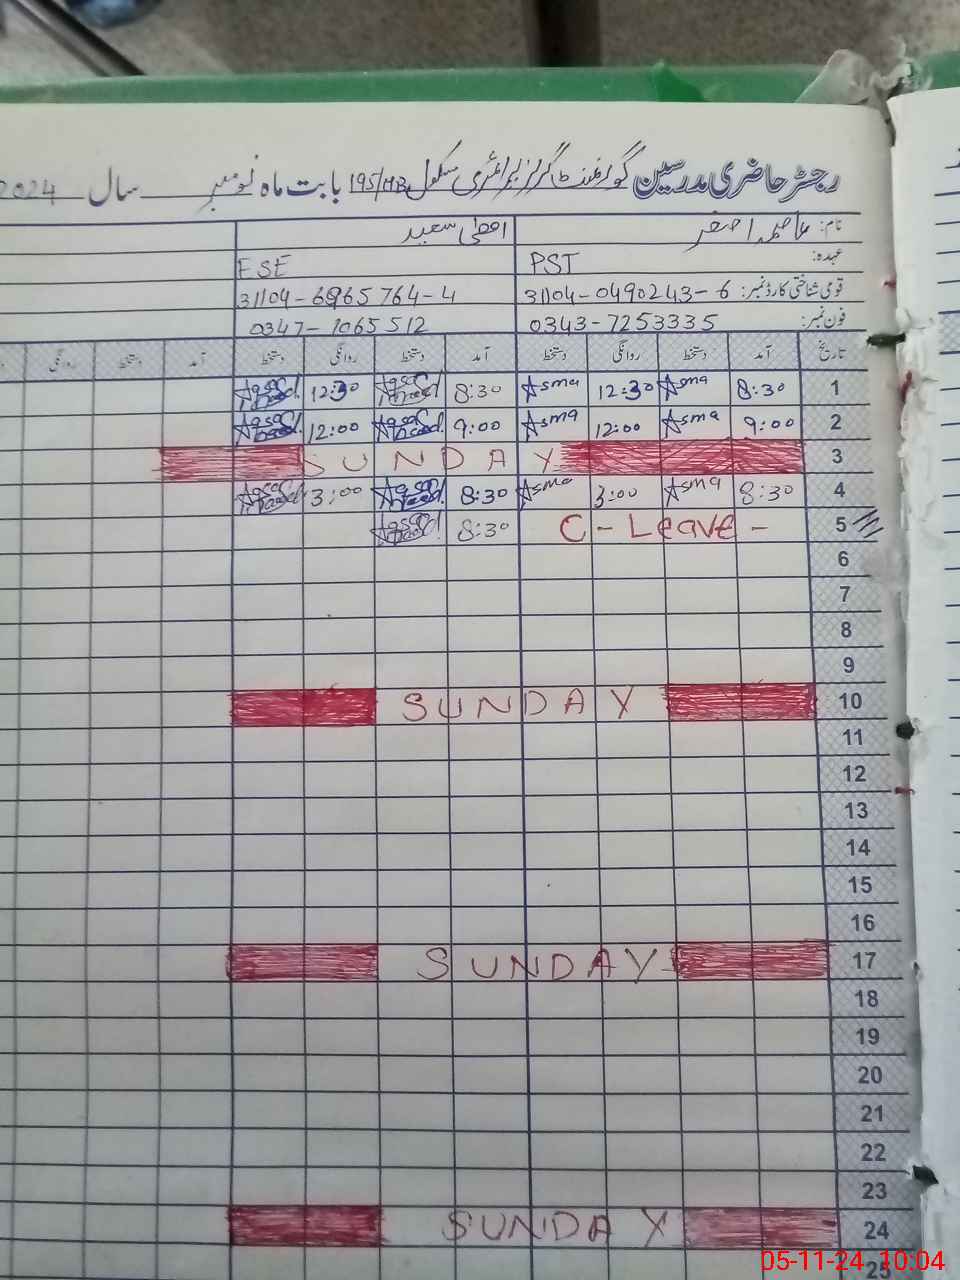 رجسٹر حاضری مدرسین گورنمنٹ گرلز ایلیمنٹری سکول 195/MB بابت ماہ نومبر سال 2024
نام: عاصمہ اصغر اقصیٰ سعید
عہدہ: PST ESE
قومی شناختی کارڈ نمبر: 31104-0490243-6 31104-6965764-4
فون نمبر: 0343-7253335 0347-1065512
تاریخ آمد دستخط روانگی دستخط آمد دستخط روانگی دستخط آمد دستخط روانگی
1 8:30 Asma 12:30 Asma 8:30 12:30
2 9:00 Asma 12:00 Asma 9:00 12:00
3 SUNDAY
4 8:30 Asma 3:00 Asma 8:30 3:00
5 C-Leave- 8:30
6
7
8
9
10 SUNDAY
11
12
13
14
15
16
17 SUNDAY
18
19
20
21
22
23
24 SUNDAY
25
05-11-24 10:04